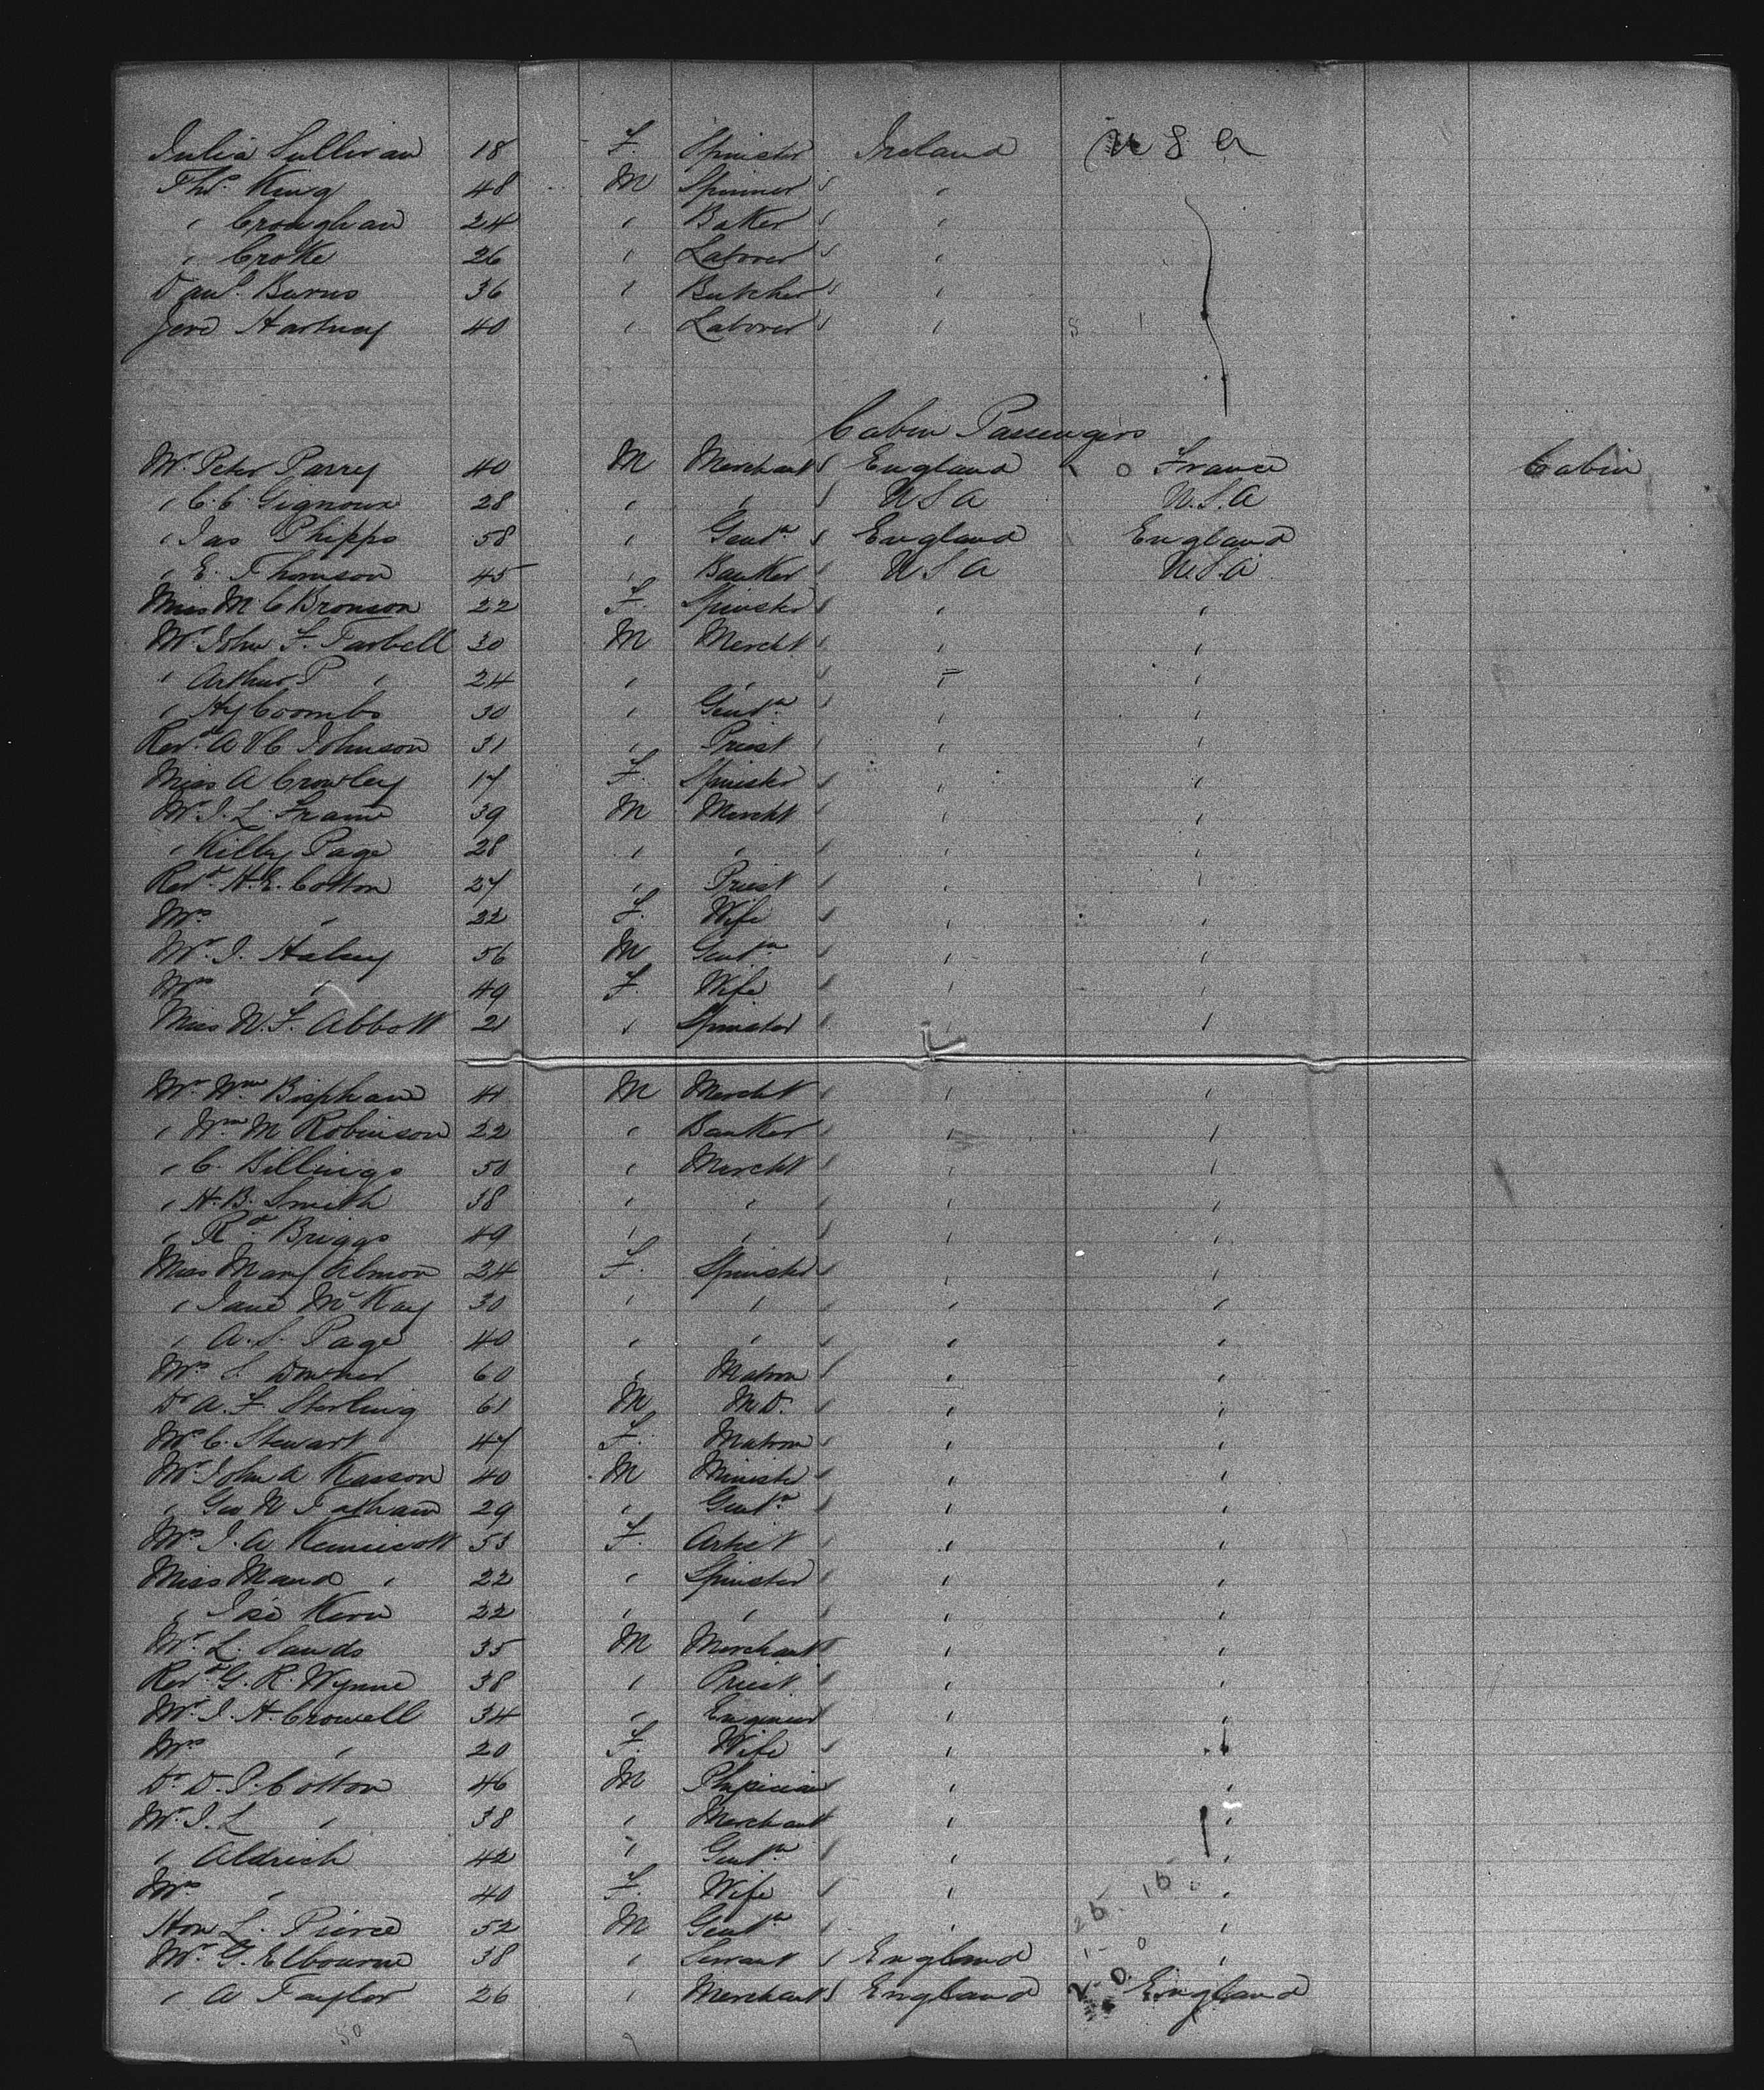 Julia Sullivan 18 F. Spinster Ireland U S A
Thos. King 48 M Spinner "
" Croughan 24 " Baker "
" Croke 26 " Laborer "
Danl. Burns 36 " Butcher "
Jere Hartney 40 " Laborer "
Cabin Passengers
Mr. Peter Parry 40 M Merchant England France Cabin
" C. C. Gignoux 28 " " U S A U.S.A
" Jas Phipps 58 " Gentn. England England
" E. Thomson 45 " Banker U S A U.S.A
Miss M. C Bronson 22 F. Spinster " "
Mr. John F. Tarbell 30 M Mercht. " "
" Arthur P " 24 " " " "
" Hy Coombs 30 " Gentn. " "
Revd. A V C Johnson 31 " Priest " "
Miss A Crowley 17 F. Spinster " "
Mr. J. L. Frame 39 M Mercht " "
" Kilby Page 28 " " " "
Revd. H. E. Cotton 27 " Priest " "
Mrs. " 22 F. Wife " "
Mr. J. Halsey 56 M Gentn. " "
Mrs " 49 F. Wife " "
Miss N. F. Abbott 21 " Spinster " "
Mr. Wm. Bispham 41 M Mercht " "
" Wm M Robinson 22 " Banker " "
" C. Billings 50 " Mercht " "
" H. B. Smith 38 " " " "
" Rd. Briggs 49 " " " "
Miss Mary Almon 24 F. Spinster " "
" Jane McKay 30 " " " "
" A. S. Page 40 " " " "
Mrs S. 60 " Matron " "
Dr A. F. Sterling 61 M M.D. " "
Mrs C. Stewart 47 F. Matron " "
Mr. John A Kasson 40 M Minister " "
" Geo N Tatham 29 " Gentn. " "
Mrs. J. A Kennicott 53 F. Artist " "
Miss Maud " 22 " Spinster " "
" Kern 22 " " " "
Mr. L. Sands 35 M Merchant " "
Revd. G. R. Wynne 38 " Priest " "
Mr. J. H. Crowell 34 " Engineer " "
Mrs " 20 F. Wife " "
Dr. D. P. Cotton 46 M Physician " "
Mr. J. L " 38 " Merchant " "
" Aldrich 42 " Gentn. " "
Mrs " 40 F. Wife " "
Hon L. Pierce 52 M Gentn " "
Mr. G. Elbourne 38 " Servant England "
" A Taylor 26 " Merchant England England
50